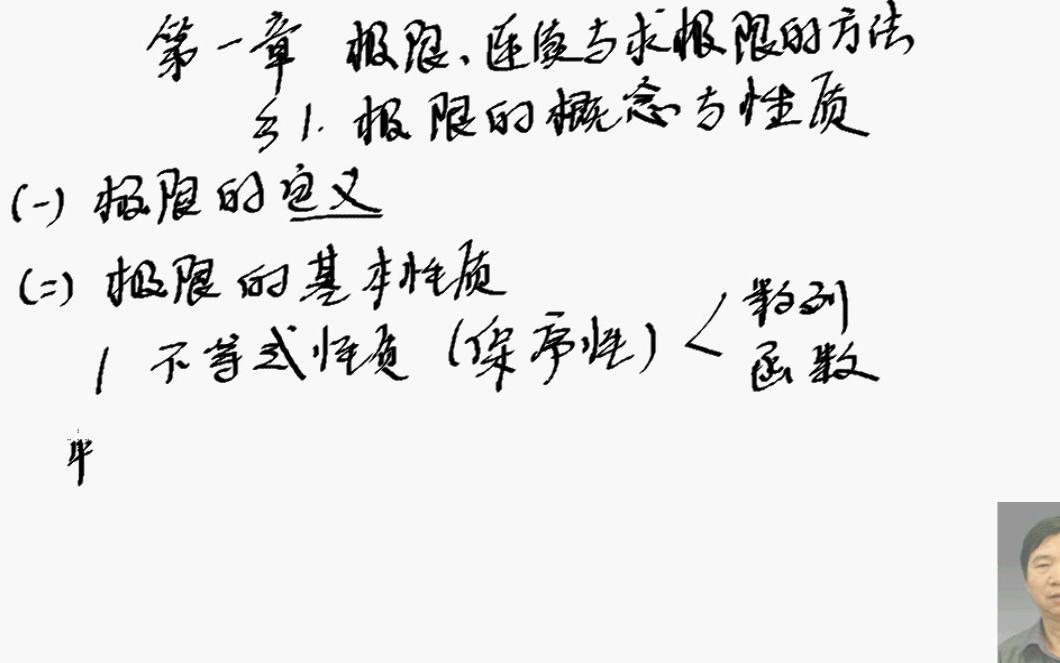 第一章 极限、连续与求极限的方法
§1. 极限的概念与性质
(一) 极限的定义
(二) 极限的基本性质
1 不等式性质 (保序性) < 数列
函数